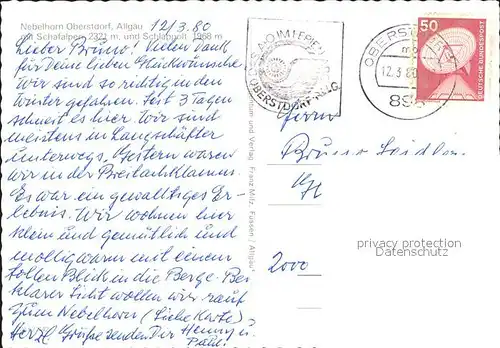 Nebelhorn Oberstdorf, Allgäu
mit Schafalpen 2321 m, und Schlappolt 1968 m
12/3.80
Lieber Bruno! Vielen Dank
für Deine lieben Glückwünsche.
Wir sind so richtig in den
Winter gefahren. Seit 3 Tagen
schneit es hier. Wir sind
meistens in Langschäfter
unterwegs. Gestern waren
wir in der Breitachklamm.
Es war ein gewaltiges Er-
lebnis. Wir wohnen hier
klein und gemütlich und
mollig warm mit einem
tollen Blick in die Berge. Bei
klarer Sicht wollen wir rauf
zum Nebelhorn (Siehe Karte)
Herzl. Grüße senden Dir Henny u.
Paul.
Verlag Franz Milz, Füssen / Allgäu
OBERSTDORF/ALLG.
OBERSTDORF
12.3.80
898
50
DEUTSCHE BUNDESPOST
Herrn
Bruno
2000
privacy protection
Datenschutz